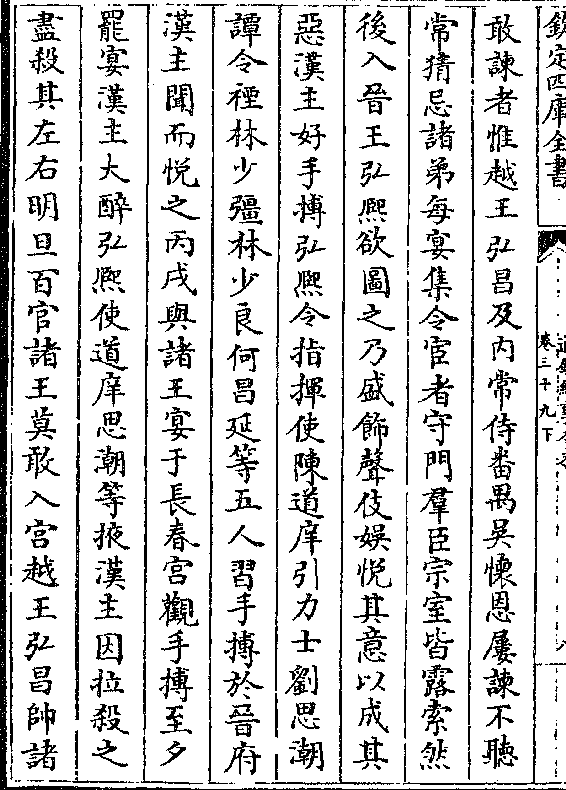 欽定四庫全書
卷三十九下
敢諫者惟越王弘昌及内常侍番禺吳懷恩屢諫不聽
常猜忌諸弟每宴集令宦者守門羣臣宗室皆露索然
後入晉王弘熈欲圖之乃盛飾聲伎娱悦其意以成其
惡漢主好手搏弘熈令指揮使陳道庠引力士劉思潮
譚令禋林少彊林少良何昌延等五人習手搏於晉府
漢主聞而悦之丙戌與諸王宴于長春宫觀手搏至夕
罷宴漢主大醉弘熈使道庠思潮等掖漢主因拉殺之
盡殺其左右明旦百官諸王莫敢入宫越王弘昌帥諸